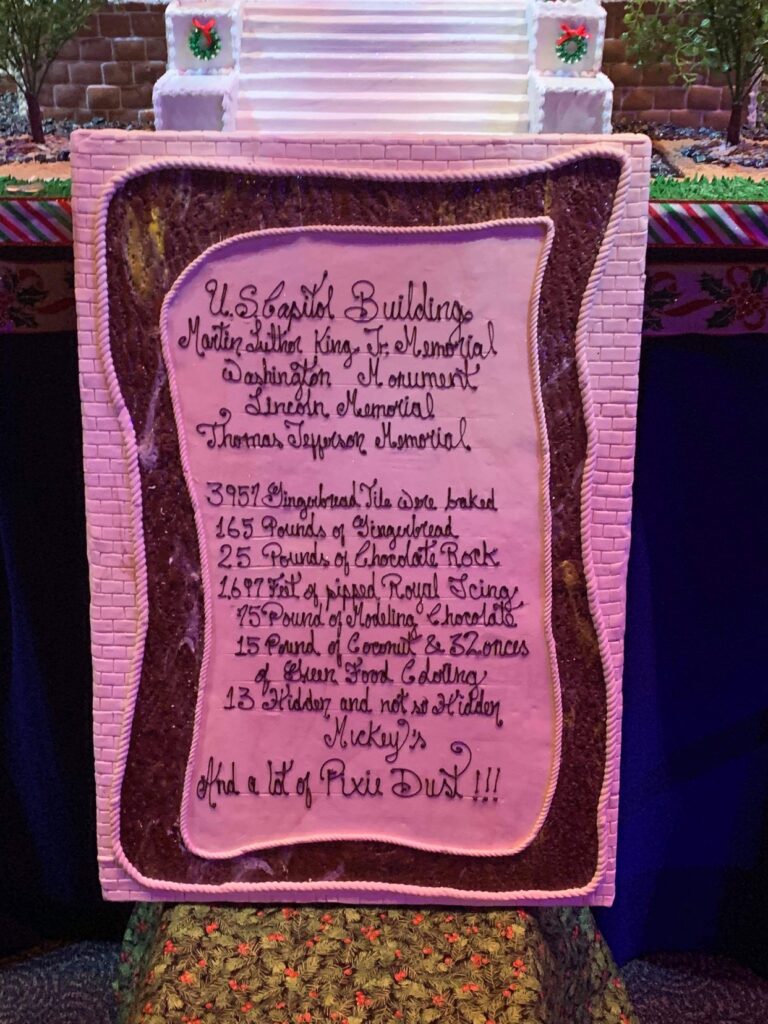 U.S. Capitol Building
Martin Luther King Jr. Memorial
Washington Monument
Lincoln Memorial
Thomas Jefferson Memorial
3957 Gingerbread Tile were baked
165 Pounds of Gingerbread
25 Pounds of Chocolate Rock
1,697 Feet of pipped Royal Icing
75 Pound of Modeling Chocolate
15 Pound of Coconut & 32 onces
of Green Food Coloring
13 Hidden and not so Hidden
Mickey's
And a lot of Pixie Dust !!!